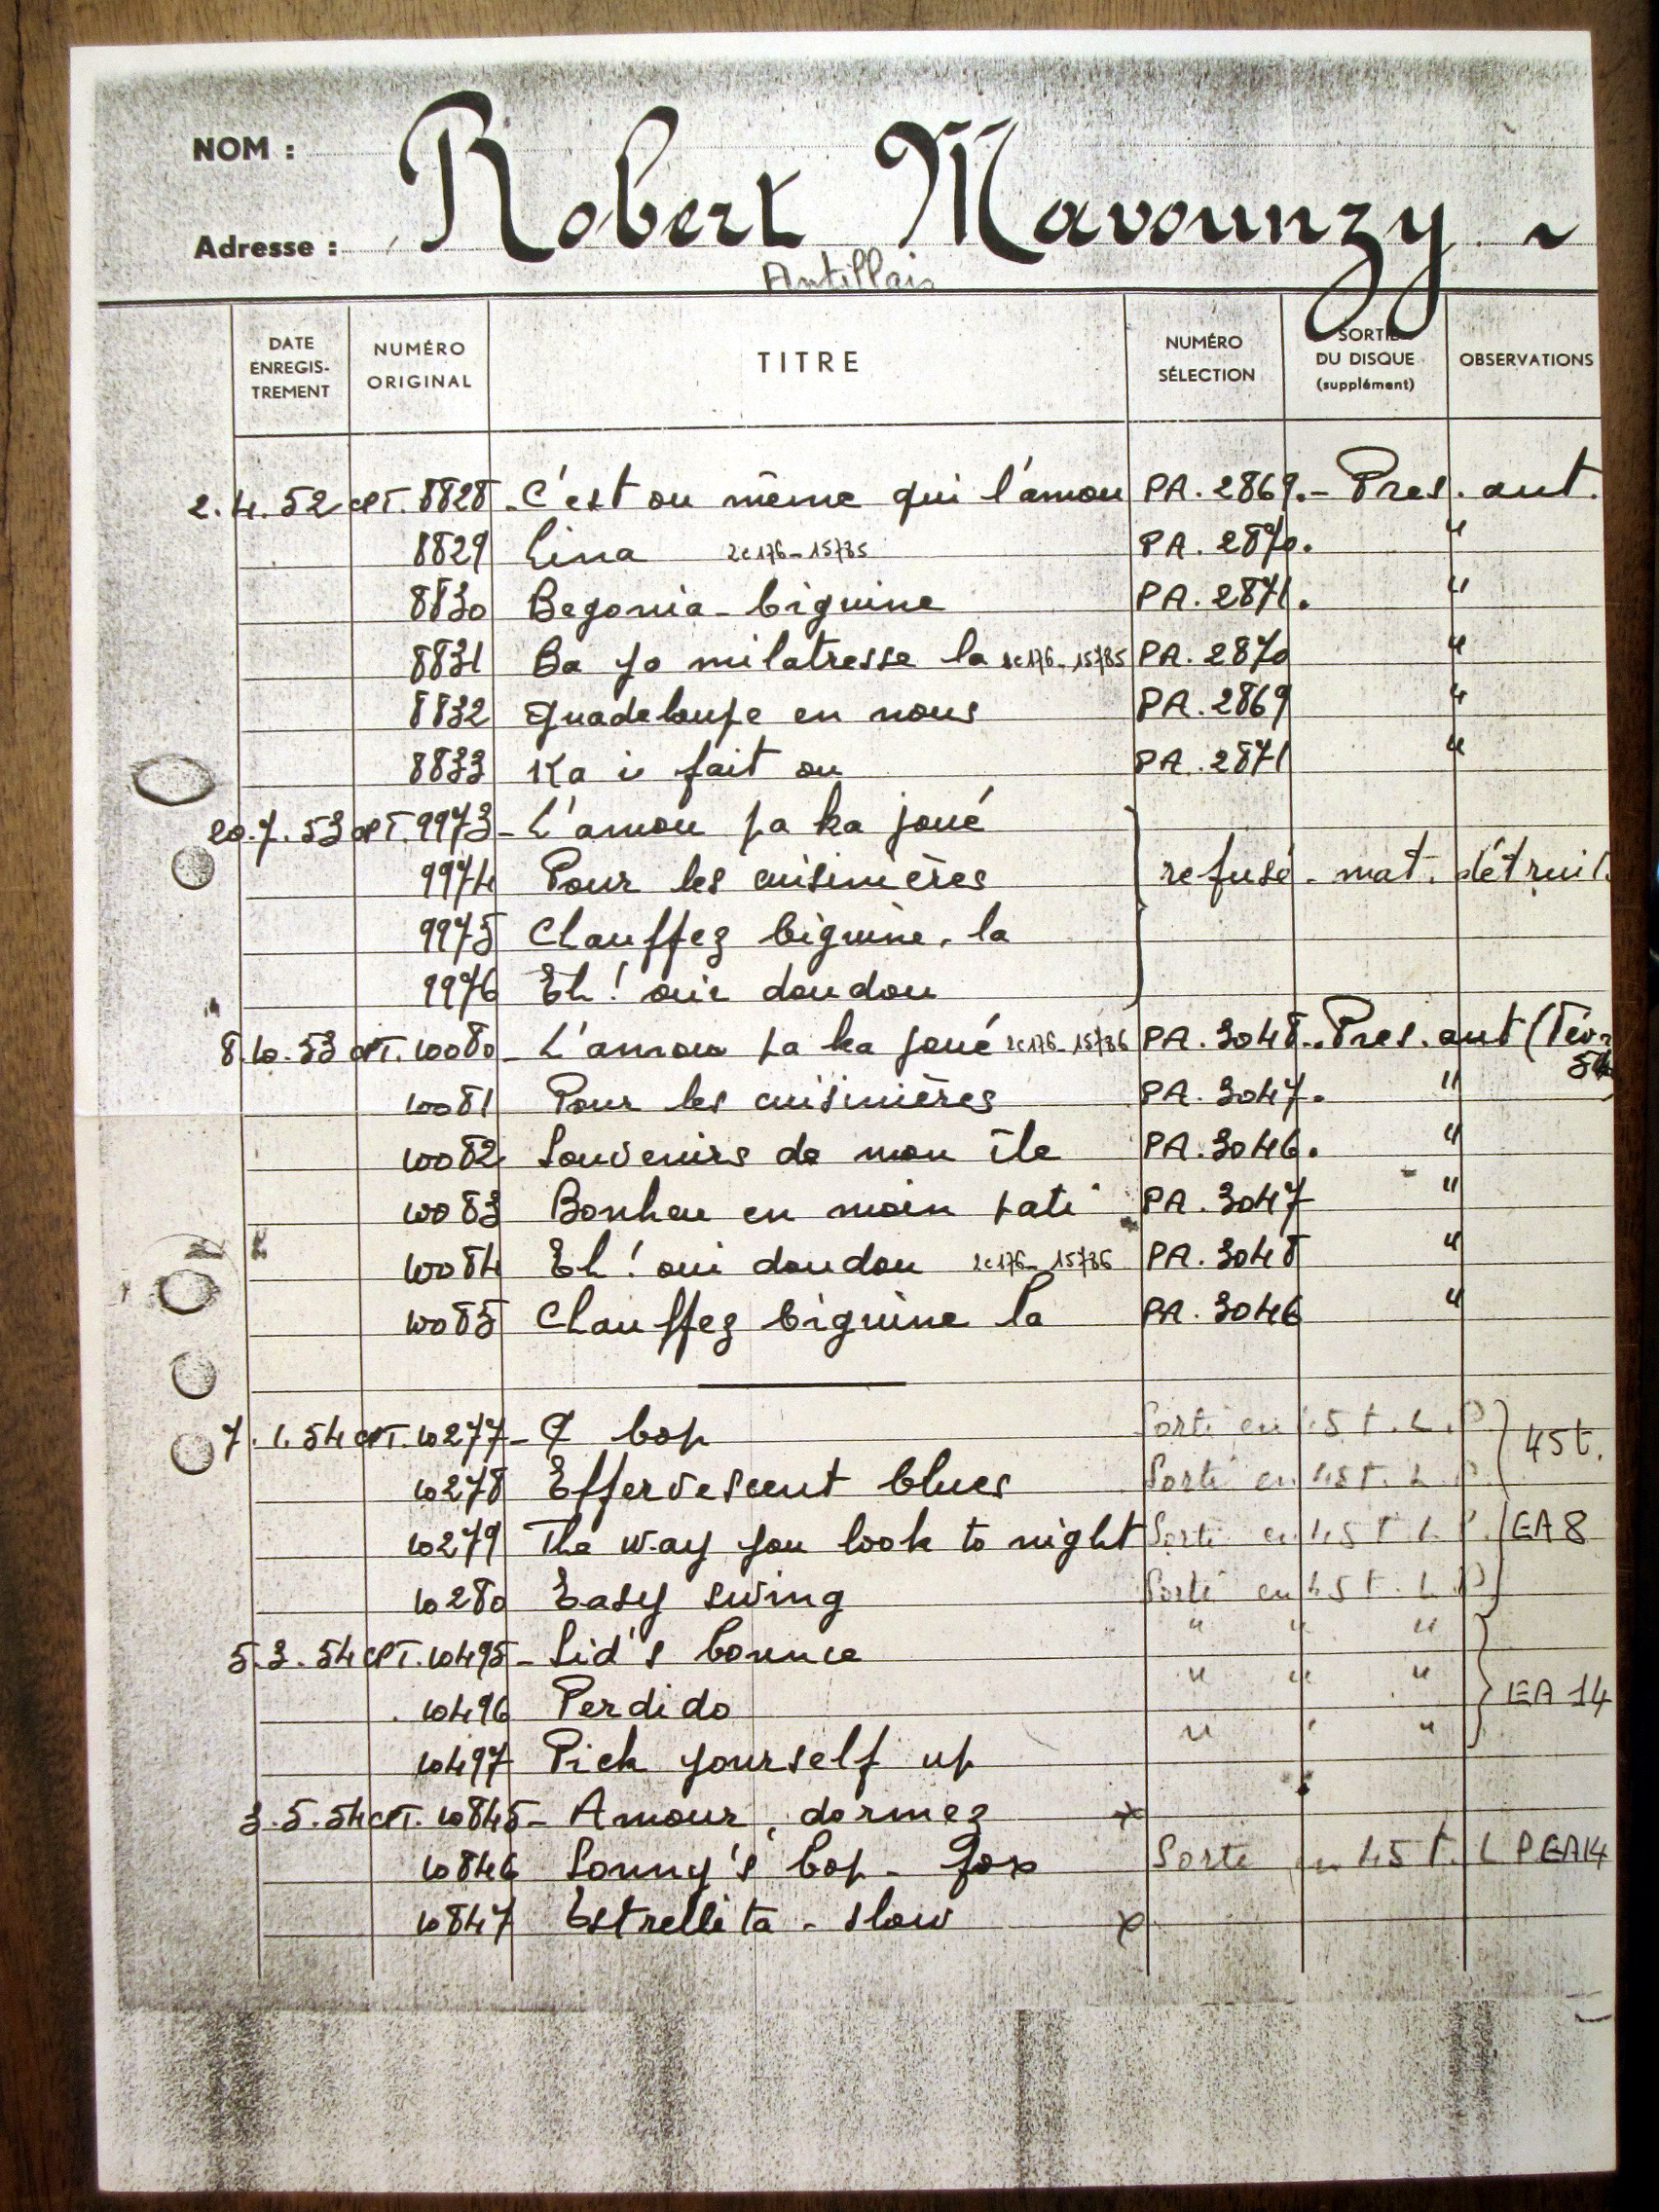 NOM : Robert Mavounzy ~
Adresse :
Antillais
DATE ENREGIS- TREMENT NUMÉRO ORIGINAL TITRE NUMÉRO SÉLECTION SORTIE DU DISQUE (supplément) OBSERVATIONS
2.4.52 CPT. 8828 - C'est ou même qui l'amou PA. 2869. - Pres. ant.
8829 Lina 2c176-15785 PA. 2870. "
8830 Begonia - biguine PA. 2871. "
8831 Ba yo milatresse la 2c176-15785 PA. 2870 "
8832 Guadeloupe en nous PA. 2869 "
8833 Ka i fait ou PA. 2871 "
20.7.53 CPT. 9973 - L'amou pa ka joué
9974 Pour les cuisinières refusé - mat. détruit.
9975 Chauffez biguine, la
9976 Eh! oui doudou
8.10.53 CPT. 10080 - L'amou pa ka joué 2c176-15786 PA. 3048. - Pres. ant (Fév. 54
10081 Pour les cuisinières PA. 3047. "
10082 Souvenirs de mon île PA. 3046. "
10083 Bonheu en moin pati PA. 3047 "
10084 Eh! oui doudou 2c176-15786 PA. 3048 "
10085 Chauffez biguine la PA. 3046 "
7.1.54 CPT. 10277 - bop Sorti en 45 t. L.P
10278 Effervescent blues Sorti en 45 t. L P 45t.
10279 The way you look to night Sorti en 45 t L P. EA 8
10280 Easy swing Sorti en 45 t. L P
5.3.54 CPT. 10495 - Sid's bounce " " "
10496 Perdido " " " EA 14
10497 Pick yourself up " " "
3.5.54 CPT. 10845 - Amour, dormez x
10846 Sonny's bop - fox Sorti en 45 t. L P EA14
10847 Estrellita - slow x